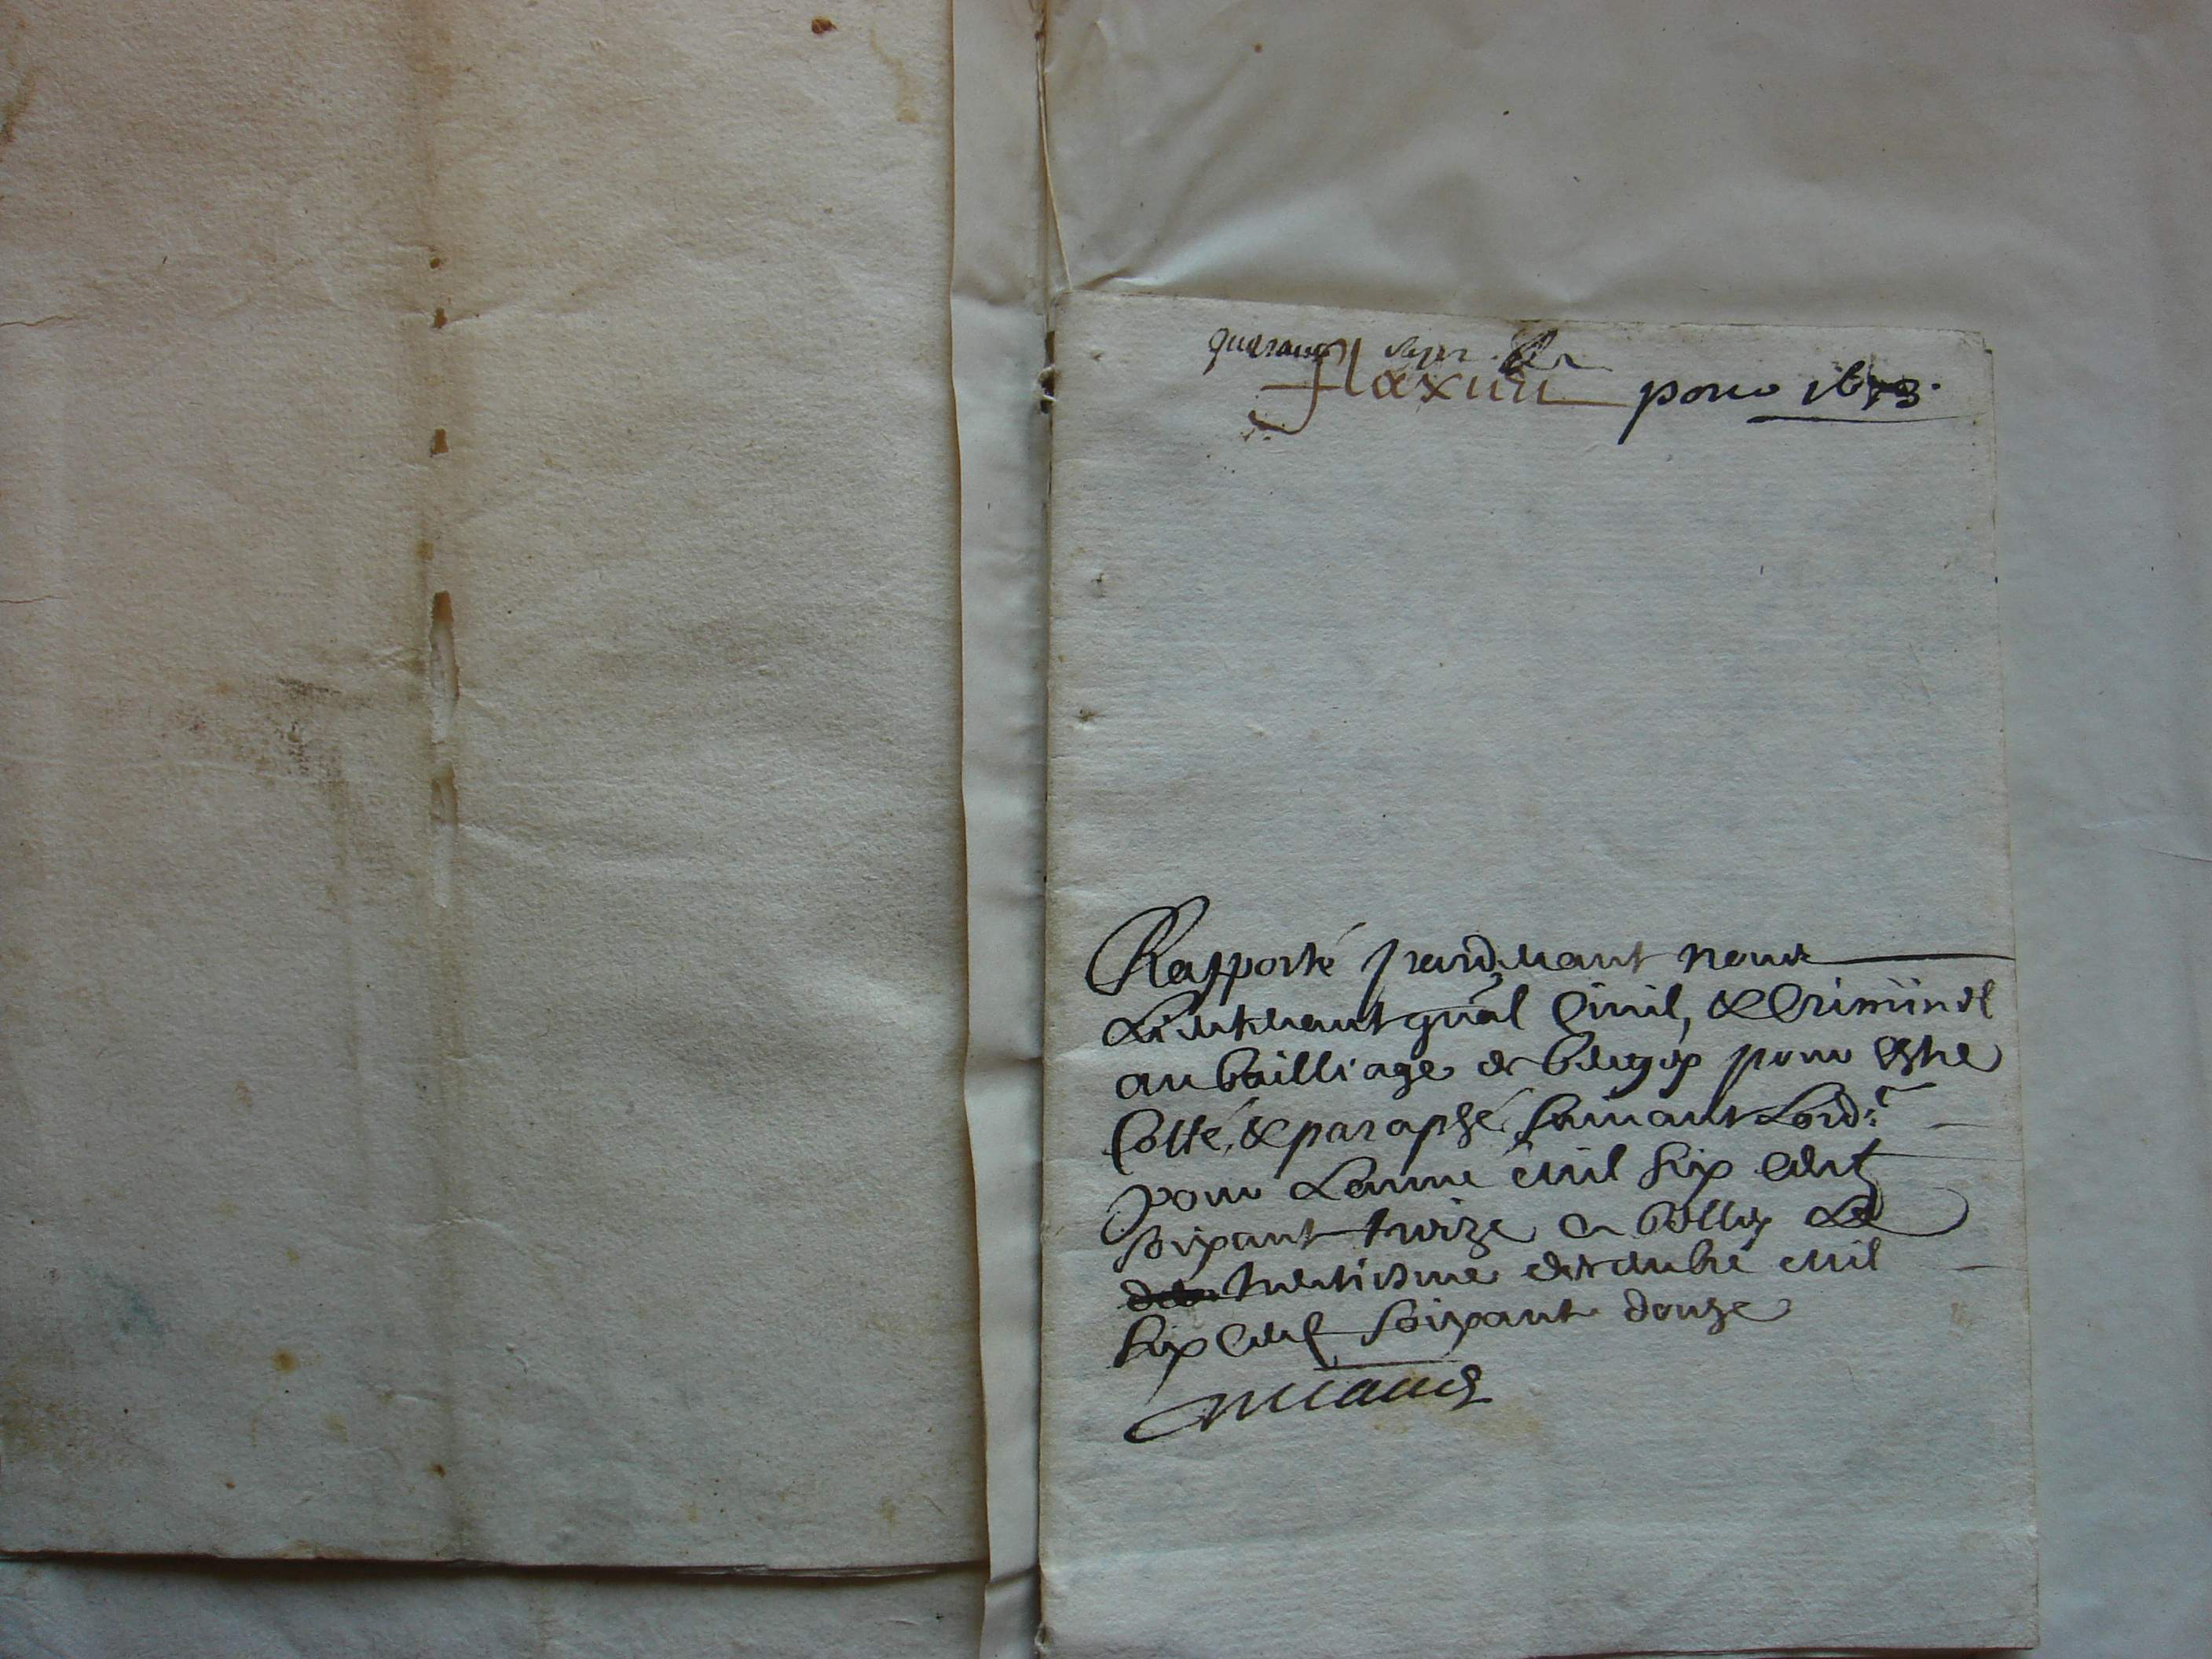 flaxieu pour 1673.
Rapporté pardeuant nous
Lieutenant gnal Ciuil, & Criminel
au bailliage de beugey pour estre
Cotté, & paraphé suiuant Lord.e
pour Lanné mil six cent
soixant treize a belley Le
trentiesme decembre mil
six cent soixant douze